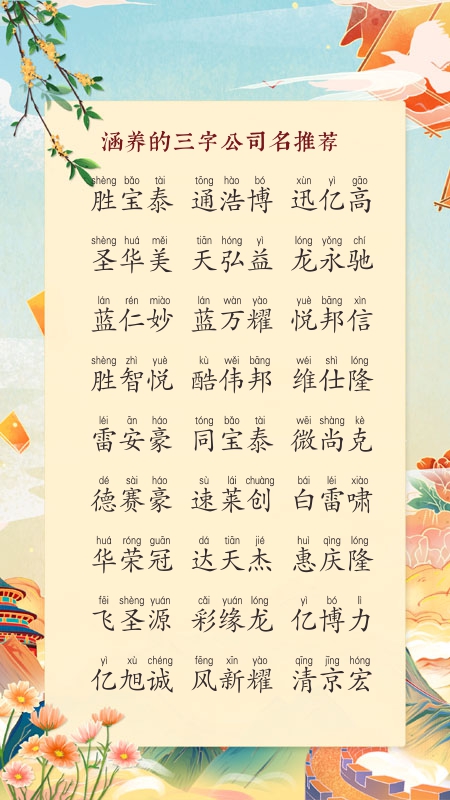 涵养的三字公司名推荐
shèng bǎo tài tōng hào bó xùn yì gāo
胜宝泰 通浩博 迅亿高
shèng huá měi tiān hóng yì lóng yǒng chí
圣华美 天弘益 龙永驰
lán rén miào lán wàn yào yuè bāng xìn
蓝仁妙 蓝万耀 悦邦信
shèng zhì yuè kù wěi bāng wéi shì lóng
胜智悦 酷伟邦 维仕隆
léi ān háo tóng bǎo tài wēi shàng kè
雷安豪 同宝泰 微尚克
dé sài háo sù lái chuàng bái léi xiào
德赛豪 速莱创 白雷啸
huá róng guān dá tiān jié huì qìng lóng
华荣冠 达天杰 惠庆隆
fēi shèng yuán cǎi yuán lóng yì bó lì
飞圣源 彩缘龙 亿博力
yì xù chéng fēng xīn yào qīng jīng hóng
亿旭诚 风新耀 清京宏